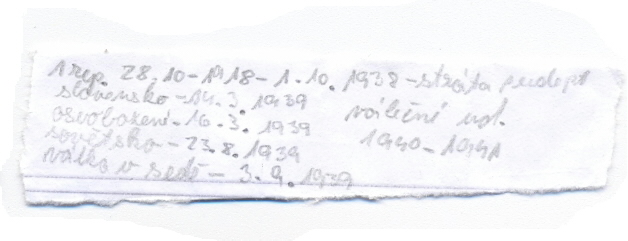 1 rep. 28.10-1918-1.10.1938-ztráta
slovensko-14.3.1939
osvobození-16.3.1939
sovětsko-23.8.1939
válka v sedě-3.9.1939
válečné ud.
1940-1941